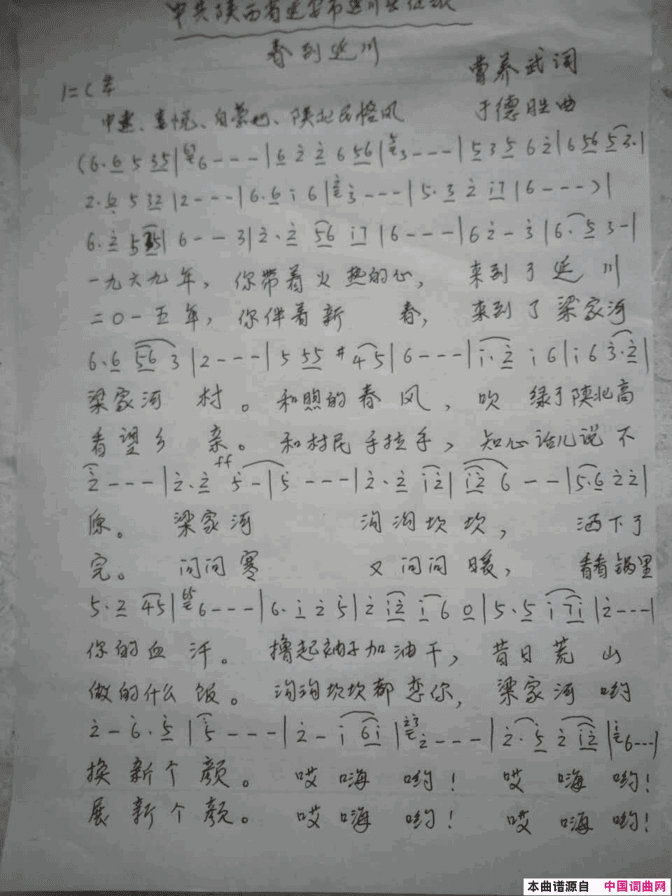 中共陕西省延安市延川县
春到延川
1=C 4/4
曹养武词
中速、喜悦、自豪地、陕北民歌风
于德胜曲
(6·6 5 35|6---|6 2 2 6 56|3---|5 3 5 6 2|6 56 5 3·|
2·6 5 32|2---|6·6 i 6|3---|5·3 2 i7|6---)|
6·2 5 35|6--3|2·2 56 i7|6---|6 2-3|6·5 3-|
一九六九年，你带着火热的心，来到了延川
二〇一五年，你伴着新春，来到了梁家河
6·6 56 3|2---|5 55 #4 5|6---|i·2 i 6|i 6 3·2|
梁家河村。和煦的春风，吹绿了陕北高
看望乡亲。和村民手拉手，知心话儿说不
2---|2·2 ff 5-|5---|2·2 i2|i2 6--|5·6 2 2|
原。梁家河沟沟坎坎，洒下了
完。问问寒又问问暖，看看锅里
5·2 45|6---|6·i 2 5|2 i2 i 6 0|5·5 i 7i|2---|
你的血汗。撸起袖子加油干，昔日荒山
做的什么饭。沟沟坎坎都恋你，梁家河哟
2-6·5|5---|2-i 6i|2---|2·5 2 i2|6---|
换新个颜。哎嗨哟！哎嗨哟！
展新个颜。哎嗨哟！哎嗨哟！
本曲谱源自 中国词曲网